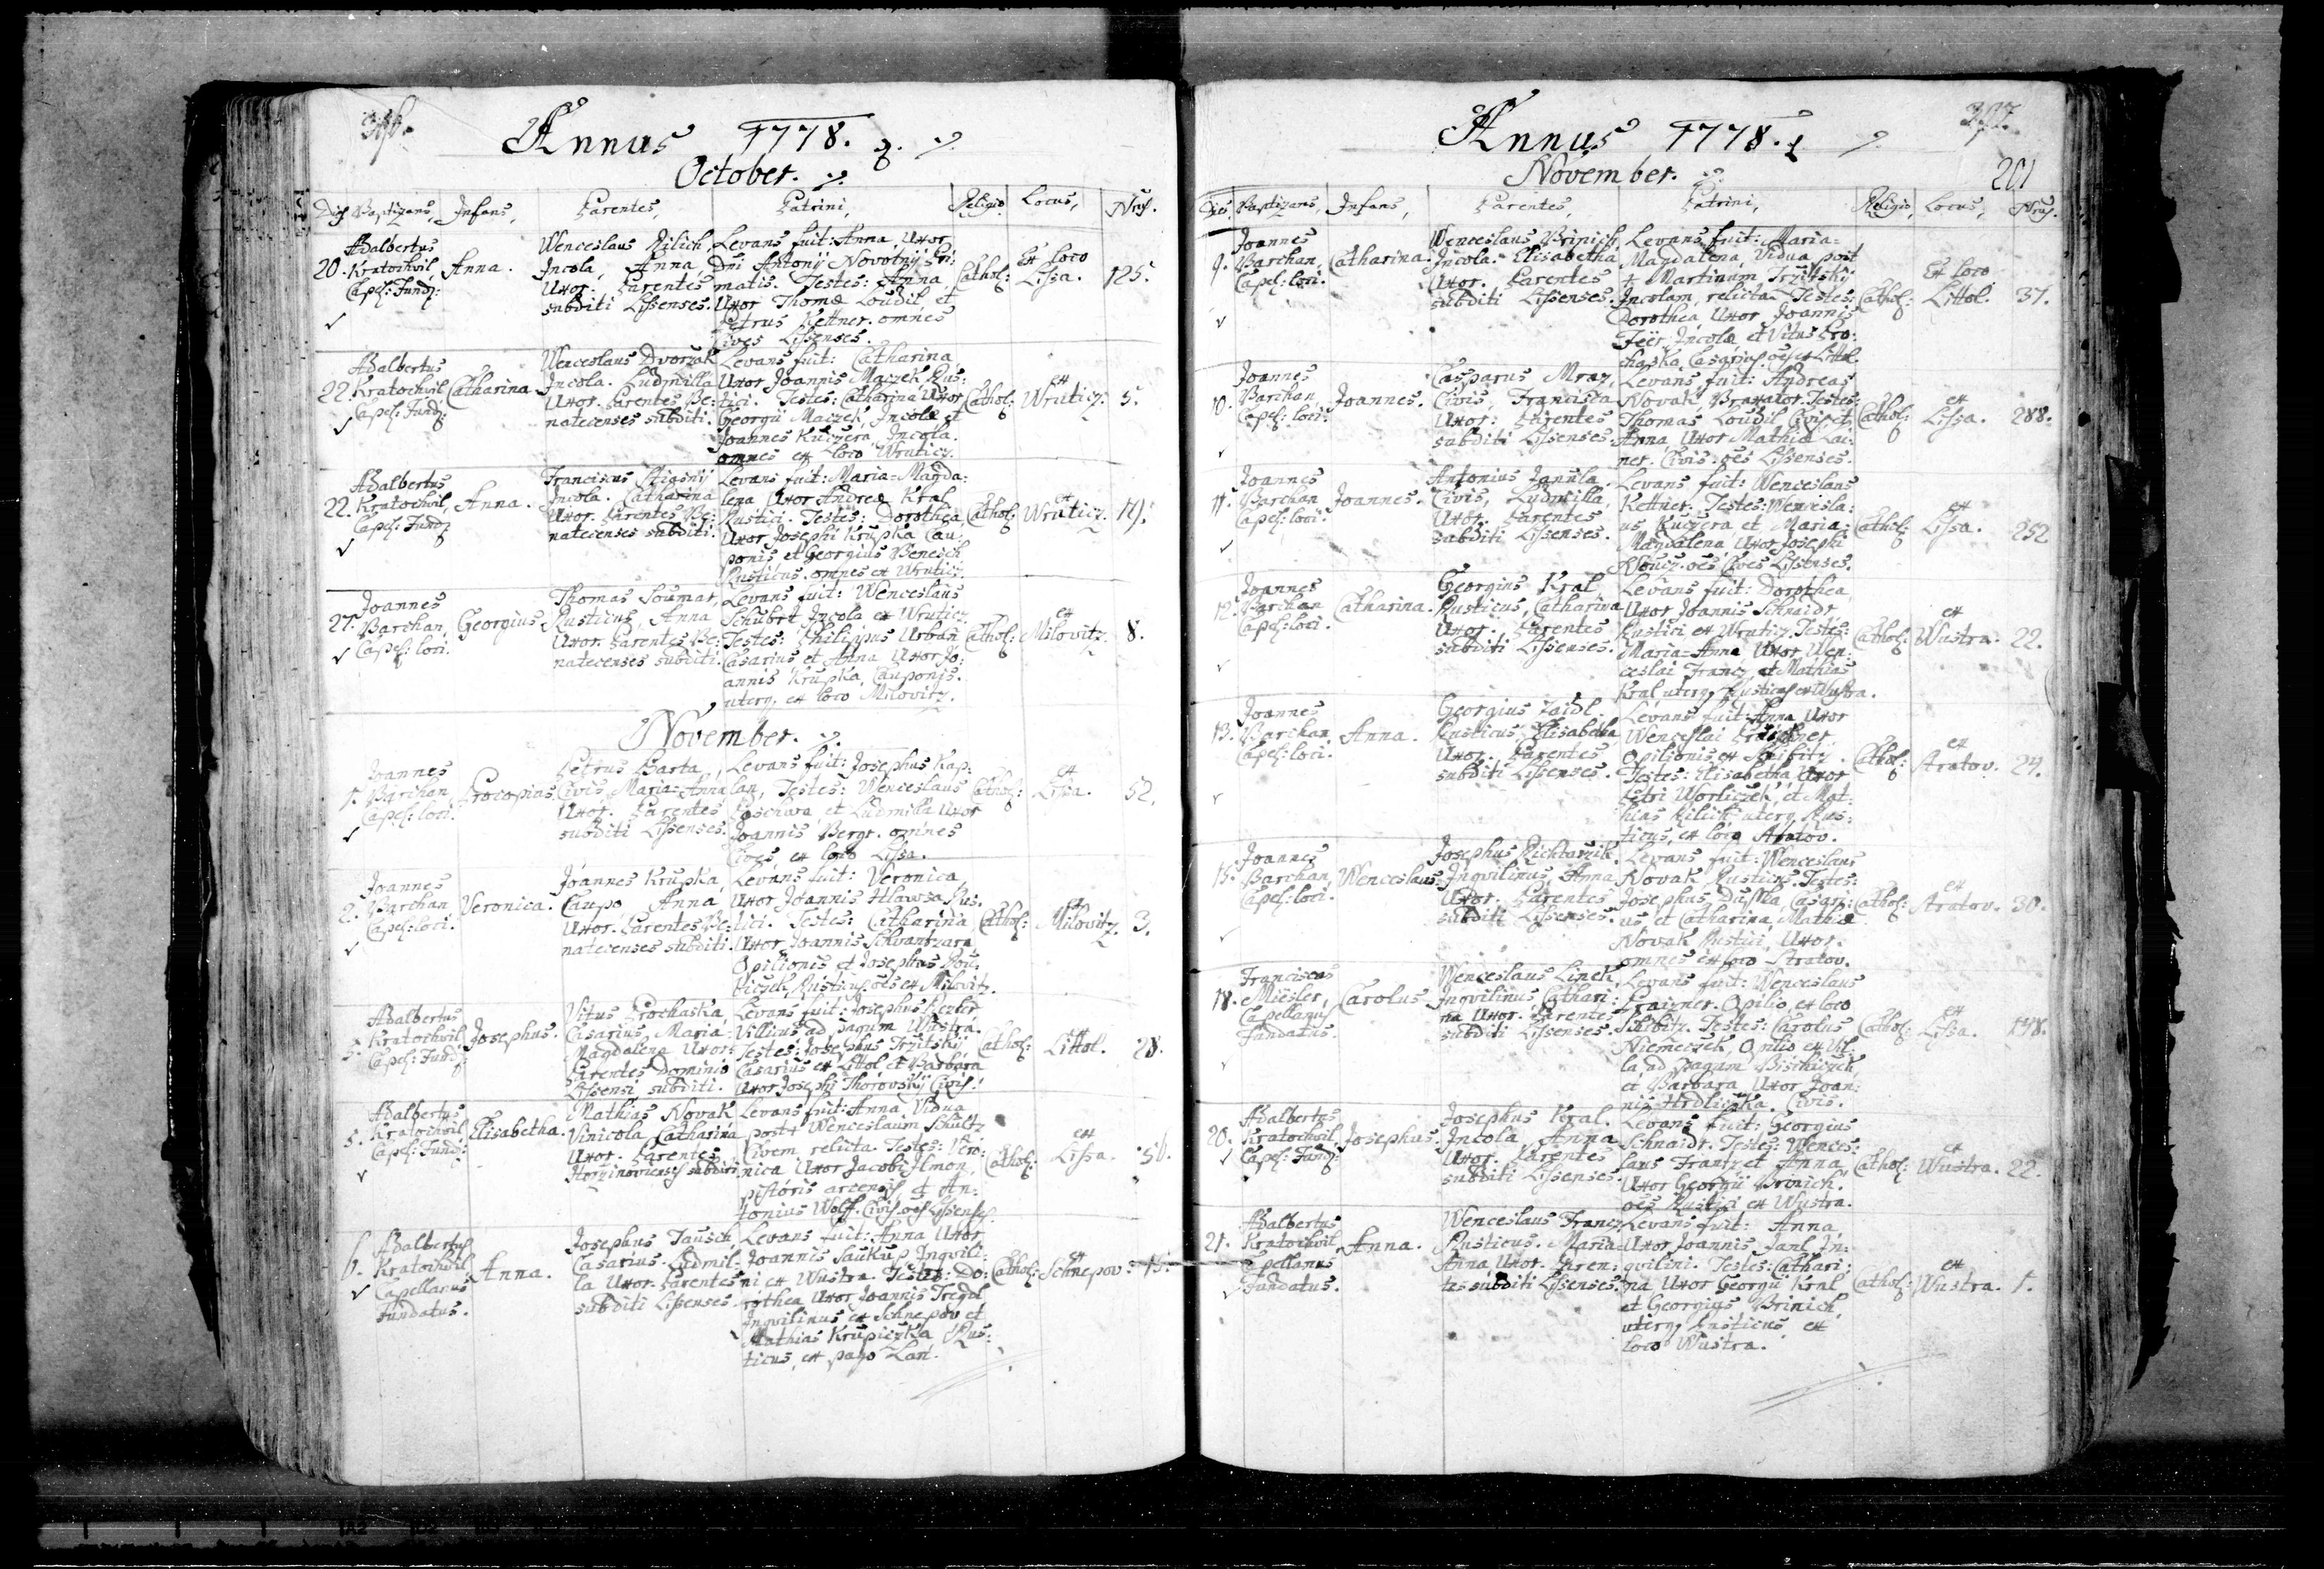 Annus 1778.
October.
Dies Baptizans, Infans, Parentes, Patrini, Religio Locus, Nrus.
Adalbertus Wenceslaus Kilich, Levans fuit: Anna, Uxor
20. Kratochvil, Anna. Incola, Anna Dni Antonij Novotnij Pri: Cathol: Ex loco
Capel: Fund: Uxor. Parentes matis. Testes: Anna, Lissa. 125.
subditi Lissenses. Uxor Thomæ Loudil et
Petrus Kettner. omnes
Cives Lissenses.
Adalbertus Wenceslaus Dvorzak Levans fuit: Catharina
22. Kratochvil Catharina. Incola. Ludmilla Uxor Joannis Maczek Rus: ex
Capel: Fund: Uxor. Parentes Be: tici. Testes: Catharina Uxor Cathol: Wruticz. 5.
natecenses subditi. Georgii Maczek, Incolæ et
Joannes Kuczera, Incola.
omnes ex loco Wruticz.
Adalbertus Franciscus Levans fuit: Maria=Magda:
22. Kratochvil, Anna. Incola. Catharina lena Uxor Andreæ Kral ex
Capel: Fund: Uxor. Parentes Be: Rustici. Testes: Dorothea Cathol: Wruticz. 19.
natecenses subditi. Uxor Josephi Krupka Cau:
ponis et Georgius Benesch
Rusticus. omnes ex Wruticz.
Joannes Thomas Soumar, Levans fuit: Wenceslaus
27. Barchan, Georgius Rusticus, Anna Schubrt Incola ex Wruticz. ex
Capel: loci. Uxor. Parentes Be: Testes: Philippus Urban Cathol: Milovitz. 8.
natecenses subditi. Casarius, et Anna Uxor Jo:
annis Krupka, Cauponis.
uterq, ex loco Milovitz.
November.
Joannes Petrus Barta, Levans fuit: Josephus Kap: ex
1. Barchan, Procopius. Civis Maria=Anna lan, Testes: Wenceslaus Cathol: Lissa. 52.
Capel: loci. Uxor. Parentes Paschura, et Ludmilla Uxor
subditi Lissenses. Joannis Bergr. omnes
Cives, ex loco Lissa.
Joannes Joannes Krupka Levans fuit: Veronica,
2. Barchan Veronica. Caupo, Anna Uxor Joannis Hlawsa Rus: ex
Capel: loci. Uxor. Parentes Be: tici. Testes: Catharina, Cathol: Milovitz. 3.
natecenses subditi. Uxor Joannis Schvantzara
Opilionis et Josephus
Rusticus. oes ex Milovitz.
Adalbertus Vitus Prochaska Levans fuit: Josephus
5. Kratochvil, Josephus. Casarius, Maria= Villicus ad pagum Wustra. ex
Capel: Fund: Magdalena Uxor: Testes: Josephus Trzitskij Cathol: Littol. 28.
Parentes Dominio Casarius ex Littol et Barbara
Lissensi subditi. Uxor Josephi Thorovskij Civis.
Adalbertus Mathias Novak Levans fuit: Anna Vidua
5. Kratochvil Elisabetha. Vinicola, Catharina post Wenceslaum Schultz ex
Capel: Fund: Uxor. Parentes Civem relicta. Testes: Vero: Cathol: Lissa. 56.
subditi nica Uxor Jacobi Ilmon,
pistoris arcensis, et An:
tonius Wolf. Civis. oes Lissenses.
Adalbertus Josephus Tausch, Levans fuit: Anna Uxor
6. Kratochvil Anna. Casarius. Ludmil= Joannis Saukup Inqvili: ex
Capellanus la Uxor. Parentes ni ex Wustra. Testes: Do: Cathol: Schnepov. 15.
Fundatus. subditi Lissenses. rothea Uxor Joannis
Inqvilinus ex Schnepov et
Mathias Krupiczka Rus:
ticus, ex pago Lan.
Annus 1778.
201
November.
Dies Baptizans, Infans, Parentes, Patrini, Religio, Locus, Nrus.
Joannes Wenceslaus Brinich, Levans fuit: Maria=
9. Barchan, Catharina. Incola. Elisabetha Magdalena, Vidua post Ex loco
Capel: loci. Uxor. Parentes Martinum Trzitskij
subditi Lissenses. Incolam, relicta. Testes: Cathol: Littol. 37.
Dorothea Uxor Joannis
Incolæ et Vitus Pro:
chaska, Casarius. oes ex Littol.
Joannes Casparus Mraz, Levans fuit: Andreas
10. Barchan, Joannes. Civis, Francisca Novak Braxator. Testes: ex
Capel: loci. Uxor. Parentes Thomas Loudil Civis, et Cathol: Lissa. 288.
subditi Lissenses. Anna Uxor Mathiæ Lac:
ner. Civis. oes Lissenses.
Joannes Antonius Janula. Levans fuit: Wenceslaus
11. Barchan Joannes. Civis, Ludmilla, Kettner. Testes: Wencesla: ex
Capel: loci. Uxor. Parentes us Kuczera et Maria= Cathol: Lissa. 252
subditi Lissenses. Magdalena Uxor Josephi
oes Cives Lissenses.
Joannes Georgius Kral, Levans fuit: Dorothea,
12. Barchan Catharina. Rusticus, Catharina Uxor Joannis Schnaidr ex
Capel: loci. Uxor. Parentes Rustici ex Wruticz. Testes: Cathol: Wustra. 22.
subditi Lissenses. Maria=Anna Uxor Wen:
ceslai Francz, et Mathias
Kral uterq, Rusticus ex Wustra.
Joannes Georgius Zaidl. Levans fuit: Anna Uxor
13. Barchan Anna. Rusticus, Elisabetha Wenceslai ex
Capel: loci. Uxor. Parentes Opilionis ex Cathol: Stratov. 24.
subditi Lissenses. Testes: Elisabetha Uxor
Petri Worliczek, et Mat:
hias Kilich uterq, Rus:
ticus, ex loco Stratov.
Joannes Josephus Richtarzik. Levans fuit: Wenceslaus
15. Barchan Wenceslaus. Inqvilinus, Anna Novak Rusticus. Testes: ex
Capel: loci. Uxor. Parentes Josephus Duschka, Casari: Cathol: Stratov. 30.
subditi Lissenses. us et Catharina, Mathiæ
Novak Rustici, Uxor.
omnes ex loco Stratov.
Franciscus Wenceslaus Linek, Levans fuit: Wenceslaus
18. Miesler, Carolus. Inqvilinus Cathari: Fraigner. Opilio, ex loco ex
Capellanus na Uxor. Parentes Testes: Carolus Cathol: Lissa. 138.
Fundatus. subditi Lissenses. Niemeczek, Opilio ex Vil:
la, ad pagum
et Barbara Uxor Joan:
nis Hrdliczka. Civis.
Adalbertus Josephus Kral. Levans fuit: Georgius
20. Kratochvil Josephus. Incola, Anna Schnaidr. Testes: Wences: ex
Capel: Fund: Uxor. Parentes laus Frantz et Anna Cathol: Wustra. 22.
subditi Lissenses. Uxor Georgii Brinich.
oes Rustici ex Wustra.
Adalbertus Wenceslaus Francz Levans fuit: Anna
21. Kratochvil Anna. Rusticus. Maria= Uxor Joannis Janl In: ex
Capellanus Anna Uxor. Paren: qvilini. Testes: Cathari: Cathol: Wustra. 1.
Fundatus. tes subditi Lissenses. na Uxor Georgii Kral
et Georgius Brinich,
uterq, Rusticus ex
loco Wustra.